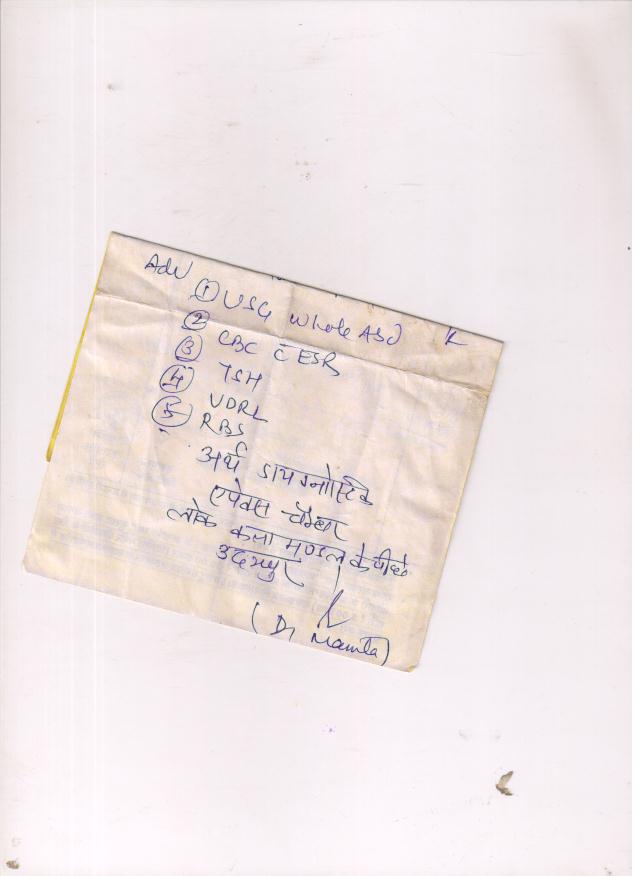 Adv
① USG whole ABD
② CBC c̄ ESR
③ TSH
④ VDRL
⑤ RBS
अर्थ डायग्नोस्टिक
एपेक्स चैम्बर
लोक कला मण्डल के पीछे
उदयपुर
(Dr Mamta)